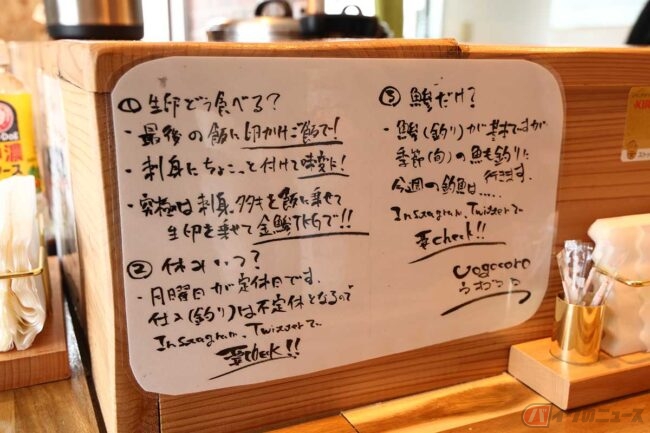 ① 生卵どう食べる?
・最後の飯に卵かけご飯で!
・刺身にちょこっと付けて味変に!
・究極は刺身、タタキを飯に乗せて
生卵を乗せて金鯵TKGで!!
② 休みいつ?
・月曜日が定休日です。
仕入(釣り)は不定休となるので
Instagram、Twitterで
要check!!
③ 鯵だけ?
・鯵(釣り)が基本ですが
季節(旬)の魚も釣りに
行きます。
今週の釣魚は……
Instagram、Twitterで
要check!!
uogocoro
うおごころ
バイクのニュース